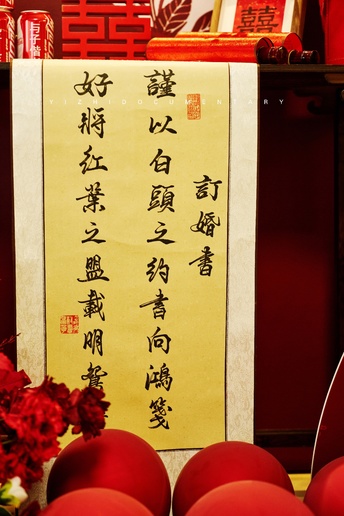 訂婚書
謹以白頭之約書向鴻箋
好將紅葉之盟載明鴛
YIZHI DOCUMENTARY
囍
囍
与子偕